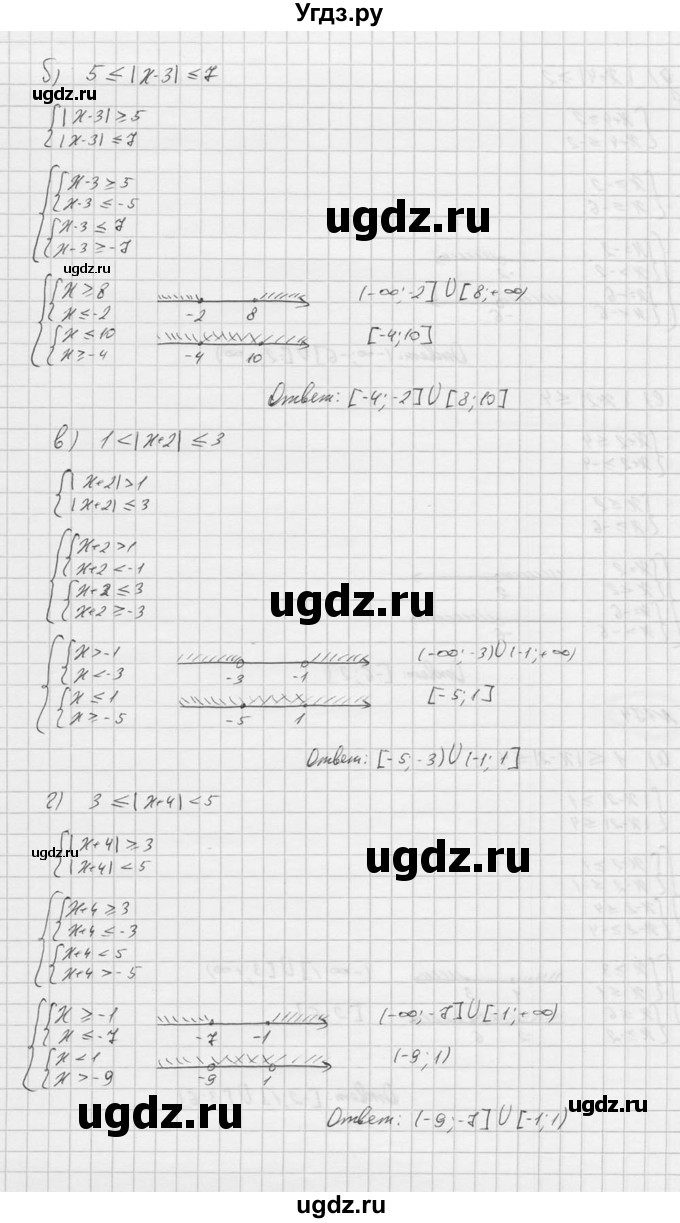 Угдз.ру
б) 5 ≤ |x-3| ≤ 7
ugdz.ru
{ |x-3| ≥ 5
|x-3| ≤ 7
{ { x-3 ≥ 5
x-3 ≤ -5
{ x-3 ≤ 7
x-3 ≥ -7
ugdz.ru
ugdz.ru
{ { x ≥ 8
x ≤ -2
{ x ≤ 10
x ≥ -4
-2 8
(-∞; -2] ∪ [8; +∞)
-4 10
[-4; 10]
Ответ: [-4; -2] ∪ [8; 10]
в) 1 < |x+2| ≤ 3
{ |x+2| > 1
|x+2| ≤ 3
{ { x+2 > 1
x+2 < -1
{ x+2 ≤ 3
x+2 ≥ -3
ugdz.ru
{ { x > -1
x < -3
{ x ≤ 1
x ≥ -5
-3 -1
(-∞; -3) ∪ (-1; +∞)
-5 1
[-5; 1]
Ответ: [-5; -3) ∪ (-1; 1]
г) 3 ≤ |x+4| < 5
{ |x+4| ≥ 3
|x+4| < 5
ugdz.ru
ugdz.ru
{ { x+4 ≥ 3
x+4 ≤ -3
{ x+4 < 5
x+4 > -5
{ { x ≥ -1
x ≤ -7
{ x < 1
x > -9
-7 -1
(-∞; -7] ∪ [-1; +∞)
-9 1
(-9; 1)
ugdz.ru
ugdz.ru
Ответ: (-9; -7] ∪ [-1; 1)
ugdz.ru